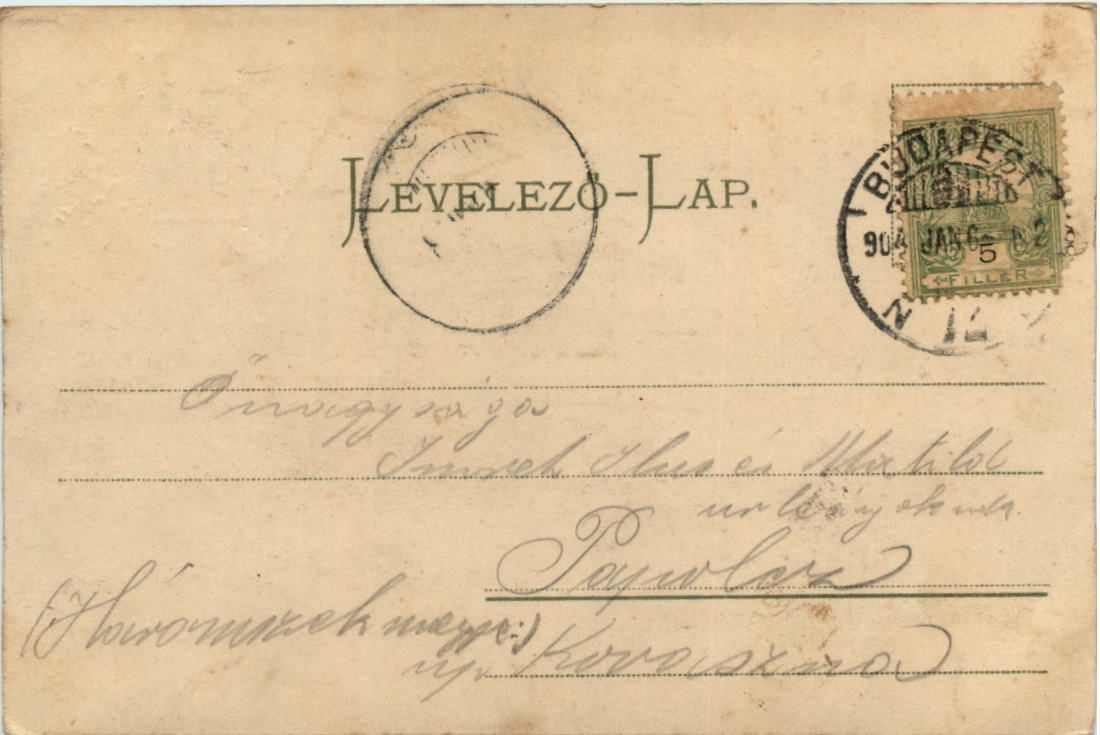 LEVELEZŐ-LAP.
BUDAPEST
904 JAN 6
5
FILLÉR
Őnagysága
Ilus és Matild
urleányoknak
Papolcz
(Háromszék megye:)
up Kovaszna